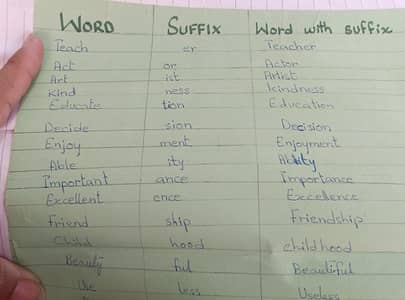 WORD SUFFIX Word with suffix
Teach er Teacher
Act or Actor
Art ist Artist
Kind ness kindness
Educate tion Education
Decide sion Decision
Enjoy ment Enjoyment
Able ity Ability
Important ance Importance
Excellent ence Excellence
Friend ship Friendship
Child hood childhood
Beauty ful Beautiful
Use less Useless